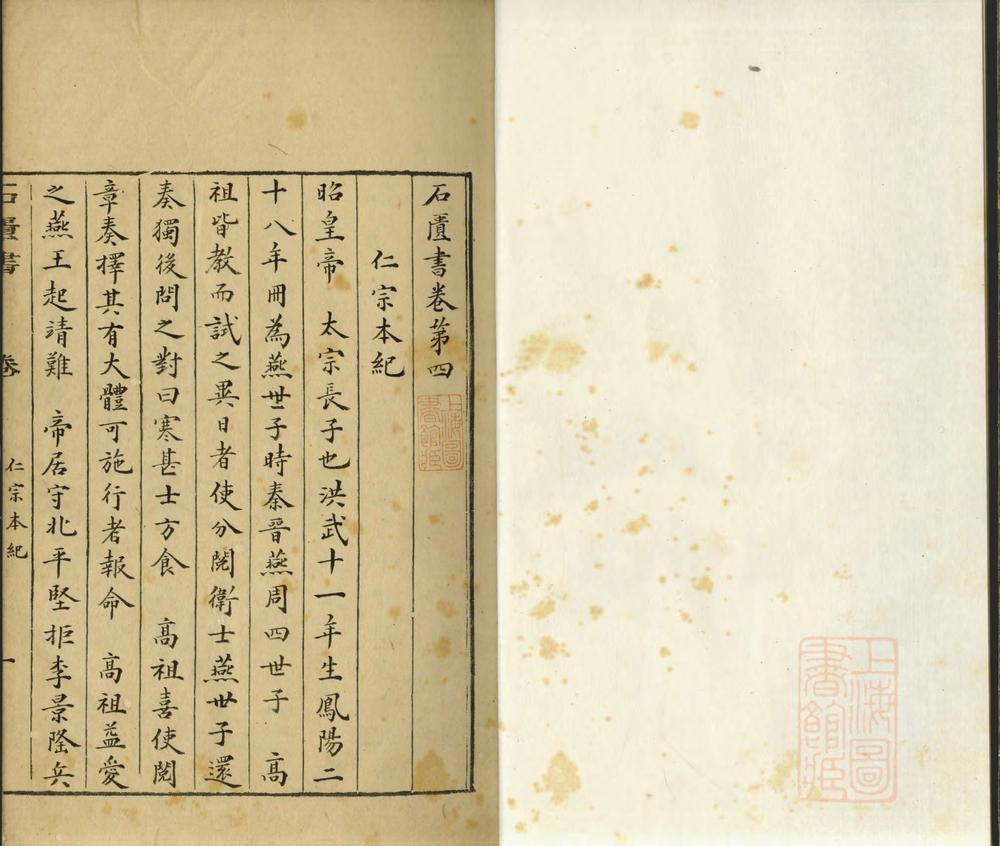 石匱書卷第四
仁宗本紀
昭皇帝　太宗長子也洪武十一年生鳳陽二
十八年冊為燕世子時秦晉燕周四世子　高
祖皆教而試之異日者使分閱衛士燕世子還
奏獨後問之對曰寒甚士方食　高祖喜使閱
章奏擇其有大體可施行者報命　高祖益愛
之燕王起靖難　帝居守北平堅拒李景隆兵
石匱書　卷　仁宗本紀　一
上海圖書館藏
上海圖書館藏